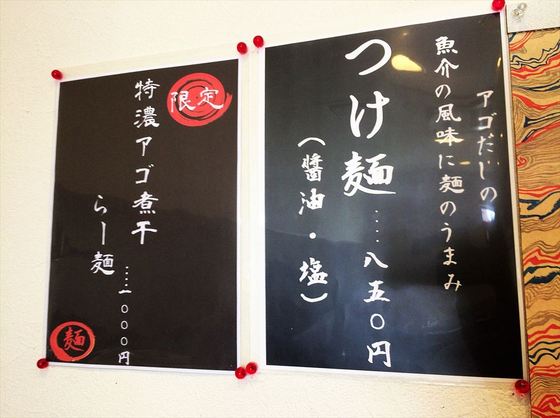 アゴだしの
魚介の風味に麺のうまみ
つけ麺‥‥八五〇円
(醤油・塩)
限定
特濃アゴ煮干
らー麺
‥‥一〇〇〇円
麺